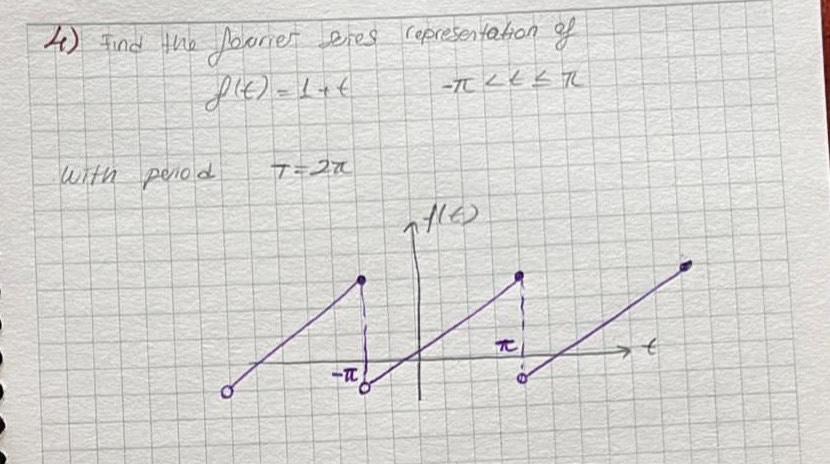 4) Find the foorier seres representation of
f(t) = 1 + t -π < t ≤ π
With period T = 2π
f(t)
-π π t